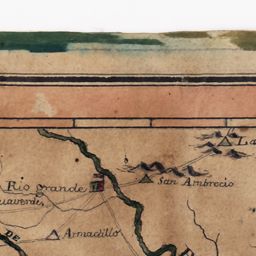 La
Rio grande
San Ambrocio
DE
Armadillo